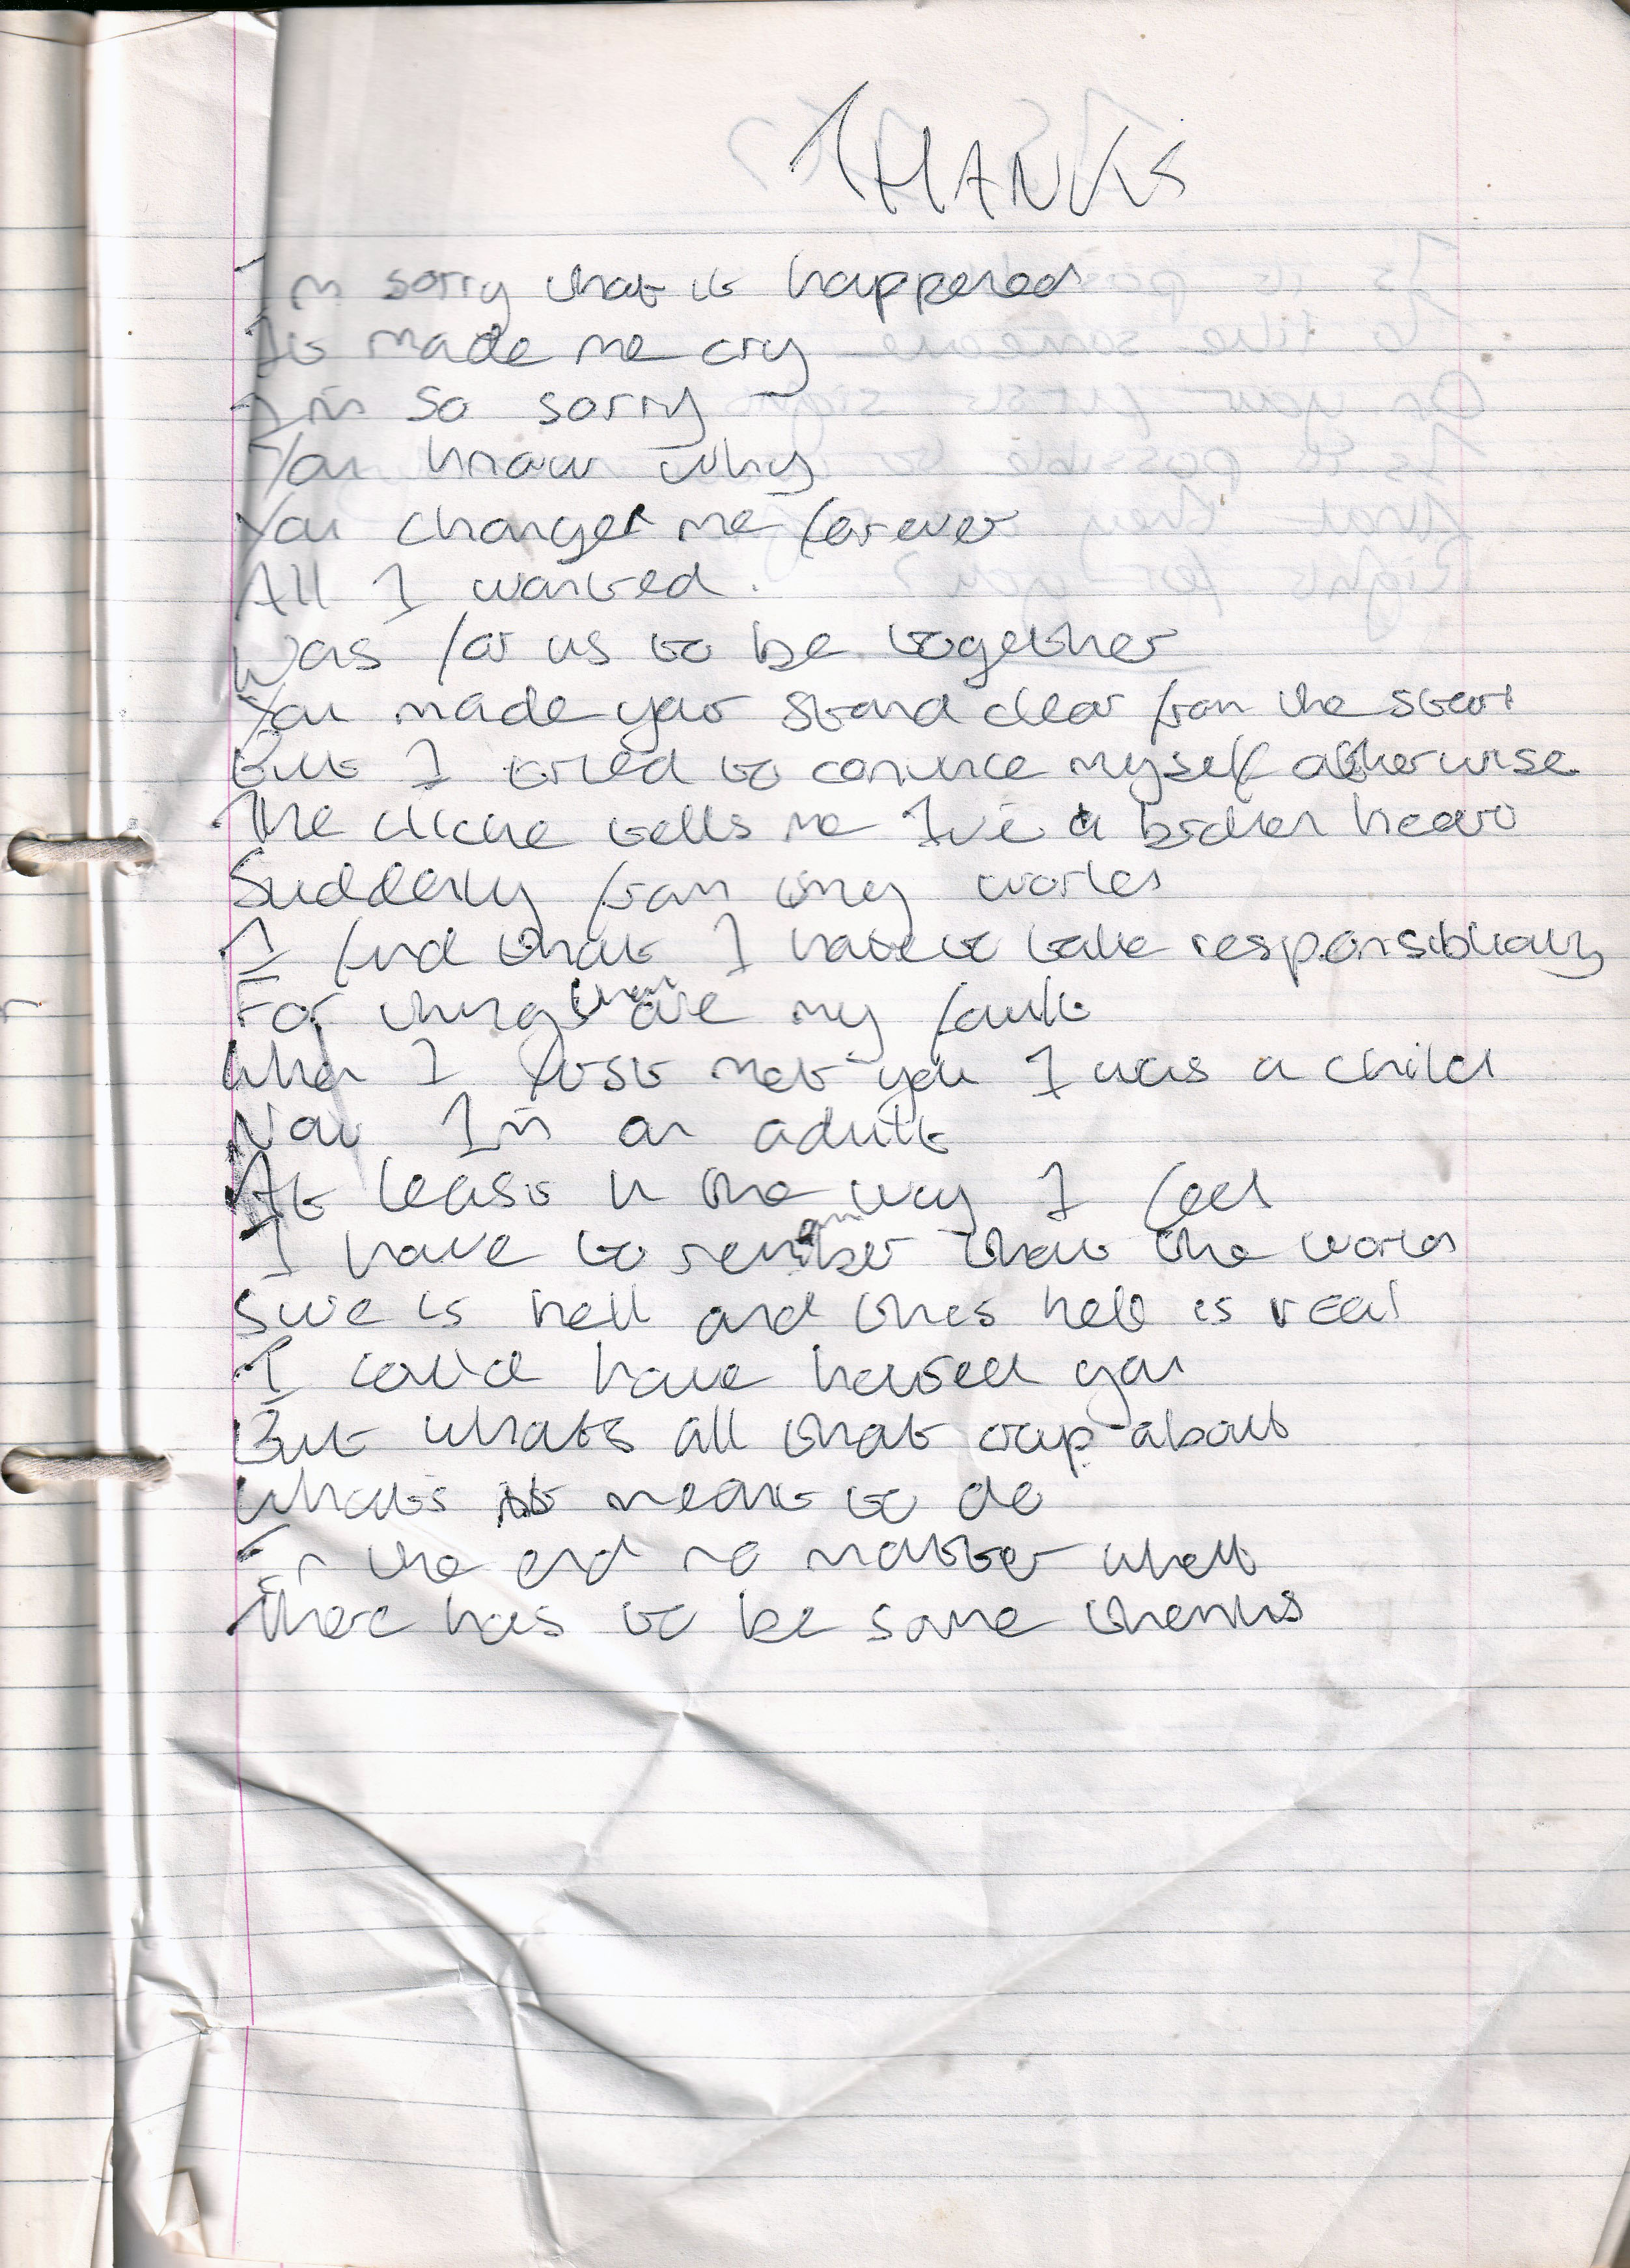 THANKS
I'm sorry that it happened
It made me cry
I'm so sorry
You know why
You changed me forever
All I wanted.
Was for us to be together
You made your stand clear from the start
But I tried to convince myself otherwise
The cliche tells me I've a broken heart
Suddenly from tiny worlds
I find that I have to take responsibility
For things that are my fault
When I first met you I was a child
Now I'm an adult
At least in the way I feel
I have to remember that the world
is hell and this hell is real
I could have hated you
But whats all that crap about
Whats it meant to do
In the end no matter what
There has to be some thanks